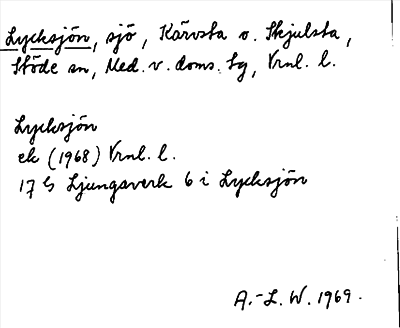 Lycksjön, sjö, Kärvsta o. Skjulsta,
Stöde sn, Med. v. doms. tg, Vrnl. l.
Lycksjön
ek (1968) Vrnl. l.
17 G Ljungaverk 6 i Lycksjön
A.-L. W. 1969.